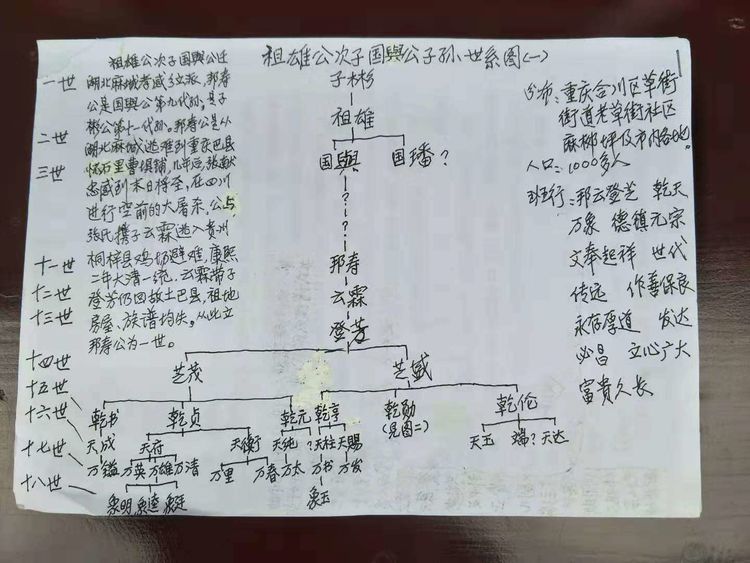 祖雄公次子国與公子孙世系图(一)
祖雄公次子国與公迁
湖北麻城孝感乡立派,邦寿
公是国與公第九代孙,是子
彬公第十一代孙。邦寿公是从
湖北麻城逃难到重庆巴县
怀石里曹俱铺,几年后,张献
忠咸到本日将至,在四川
进行空前的大屠杀,公与
张氏携子云霖逃入贵州
桐梓县鸡切避难,康熙
二年大清一统,云霖带子
登芳仍回故土巴县,祖地
房屋、族谱均失。从此立
邦寿公为一世。
一世
二世
三世
十一世
十二世
十三世
十四世
十五世
十六世
十七世
十八世
子彬
祖雄
国與 国璠?
?
?
?
邦寿
云霖
登芳
芝茂 芝盛
乾书 乾贞 乾元 乾亨 乾勋 乾伦
(见图二)
天成 天府 天衡 天纯 ? 天柱 天赐 天玉 ? 天达
万镒 万英 万雄 万清 万里 万春 万太 万书 万发
象明 象逵 象廷 象玉
分布:重庆合川区草街
街道老草街社区
麻柳坪及市内各地。
人口:1000多人
班行:邦云登芝 乾天
万象 德镇元宗
文奉起祥 世代
传远 作善保良
永存厚道 发达
必昌 立心广大
富贵久长